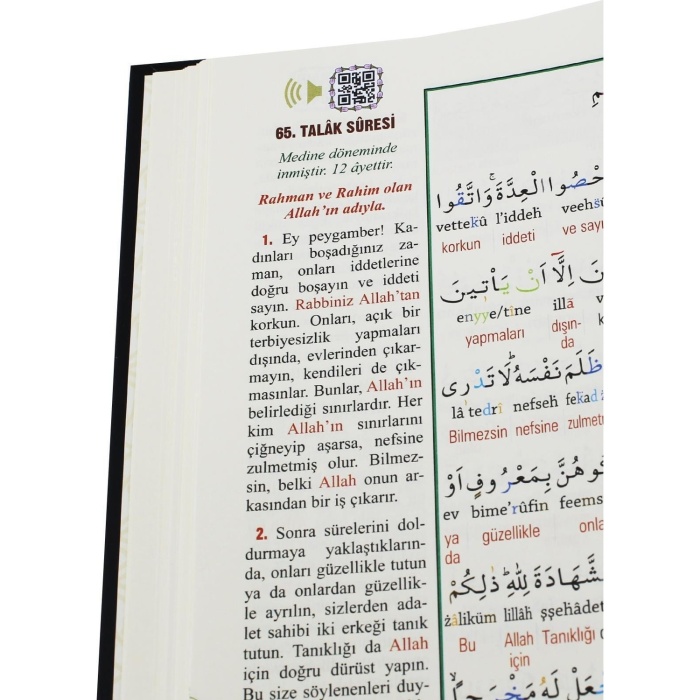 65. TALÂK SÛRESİ
Medine döneminde
inmiştir. 12 âyettir.
Rahman ve Rahim olan
Allah'ın adıyla.
1. Ey peygamber! Ka-
dınları boşadığınız za-
man, onları iddetlerine
doğru boşayın ve iddeti
sayın. Rabbiniz Allah'tan
korkun. Onları, açık bir
terbiyesizlik yapmaları
dışında, evlerinden çıkar-
mayın, kendileri de çık-
masınlar. Bunlar, Allah'ın
belirlediği sınırlardır. Her
kim Allah'ın sınırlarını
çiğneyip aşarsa, nefsine
zulmetmiş olur. Bilmez-
sin, belki Allah onun ar-
kasından bir iş çıkarır.
2. Sonra sürelerini dol-
durmaya yaklaştıkların-
da, onları güzellikle tutun
ya da onlardan güzellik-
le ayrılın, sizlerden ada-
let sahibi iki erkeği tanık
tutun. Tanıklığı da Allah
için doğru dürüst yapın.
Bu size söylenenleri duy-
حْصُوا الْعِدَّةَ وَاتَّقُوا
vettekû l'iddeh veehsû
korkun iddeti ve sayı
نَ اِلَّٓا اَنْ يَأْتٖينَ
enyye/tîne illâ
yapmaları dışın-
da
ظَلَمَ نَفْسَهُ لَا تَدْرٖى
lâ tedrî nefseh fekad
Bilmezsin nefsine zulmetm
وهُنَّ بِمَعْرُوفٍ اَوْ
ev bime'rûfin feems
ya güzellikle onla
da
شَّهَادَةَ لِلّٰهِ ذٰلِكُمْ
żâliküm lillâh şşehâdet
Bu Allah Tanıklığı
için
جْعَلْ لَهُ مَخْرَجًا